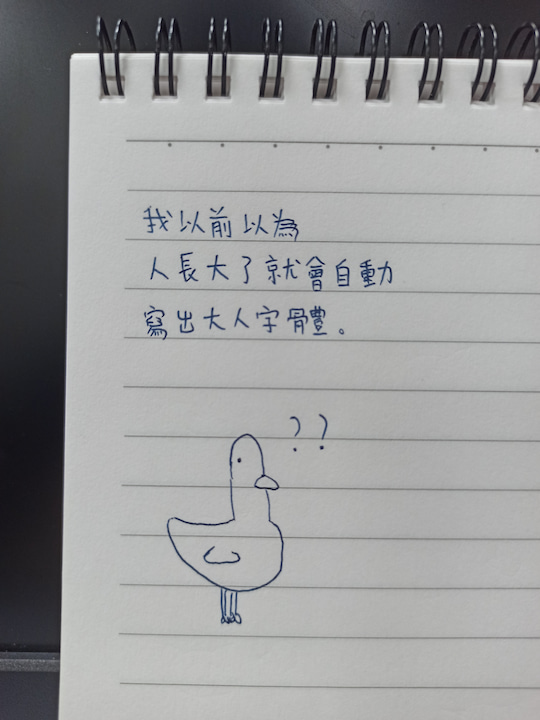 我以前以為
人長大了就會自動
寫出大人字體。
??